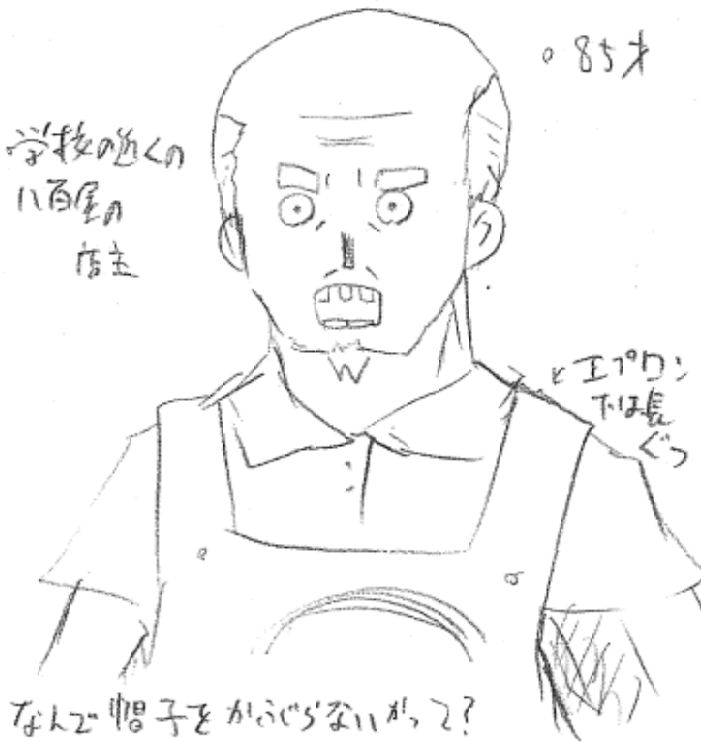 。85才
学校の近くの
八百屋の
店主
エプロン
下は長
ぐつ
なんで帽子をかぶらないかって?